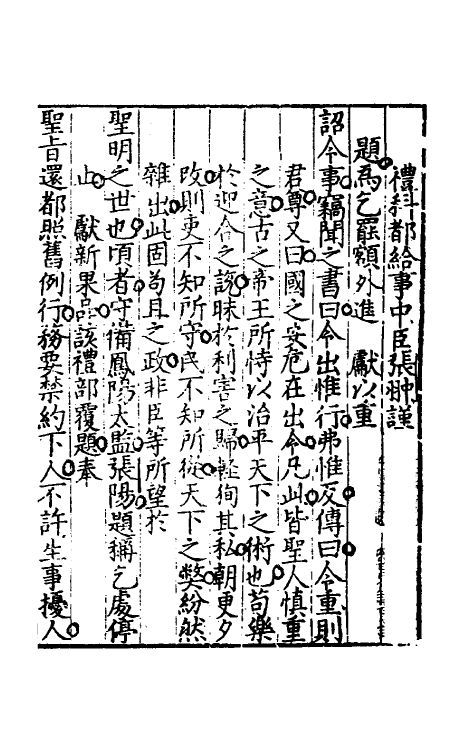 禮科都給事中臣張翀謹
題爲乞罷額外進　獻以重
詔令事竊聞之書曰令出惟行弗惟反傳曰令重則
君尊又曰國之安危在出令凡此皆聖人慎重
之意古之帝王所恃以治平天下之術也苟樂
於迎合之說昧於利害之歸輕徇其私朝更夕
改則吏不知所守民不知所從天下之弊紛然
雜出此固苟且之政非臣等所望於
聖明之世也頃者守備鳳陽太監張陽題稱乞處停
止　獻新果品該禮部覆題奉
聖旨還都照舊例行務要禁約下人不許生事擾人